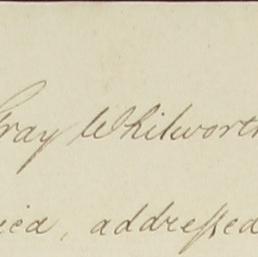 Gray Whitworth
ied, addressed